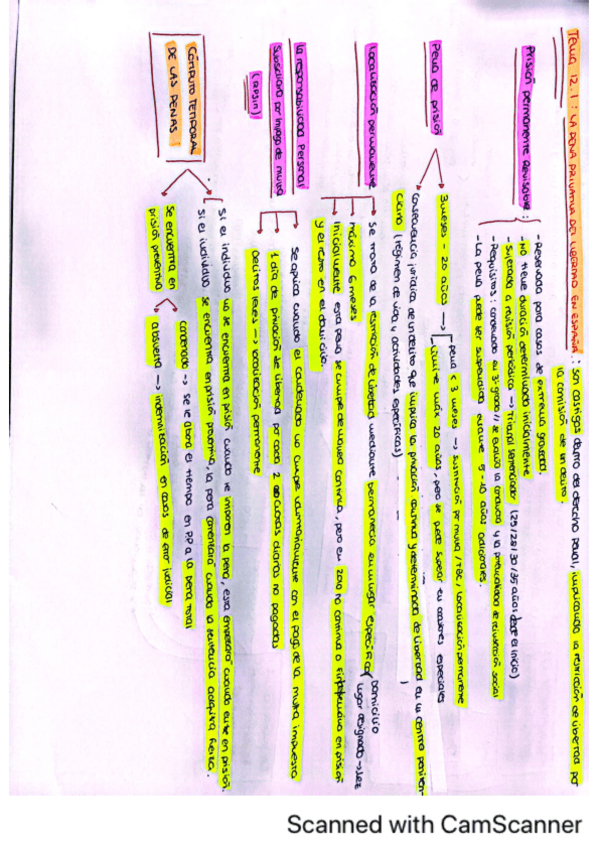 Tema 12.1: LA PENA PRIVATIVA DE LIBERTAD EN ESPAÑA: son castigos dentro del derecho penal, implicando la restricción de libertad por
la comisión de un delito.
Prisión permanente Revisable:
- Reservada para casos de extrema gravedad.
- No tiene duración determinada inicialmente
- Sujetada a revisión periódica → Tribunal sentenciador (25/28/30/35 años desde el inicio)
- Requisitos: condenado en 3º grado // se evalúa la conducta y la probabilidad de reinserción social
- La pena puede ser suspendida durante 5-10 años adicionales.
Pena de prisión
3 meses - 20 años →
pena < 3 meses → sustitución por multa / TBC / localización permanente
límite máx 20 años, pero se puede superar en ocasiones especiales
consecuencia jurídica de un delito que implica la privación continua y determinada de libertad en un centro peniten-
ciario (régimen de vida y actividades específicas)
Localización permanente
se trata de la restricción de libertad mediante permanencia en un lugar específico
Domicilio
lugar designado → Juez
máximo 6 meses
Inicialmente esta pena se cumple de manera continua, pero en 2010 no continua o en prisión
y el resto en el domicilio.
La responsabilidad Personal
Subsidiaria por impago de multa
(RPSIM)
Se aplica cuando el condenado no cumple voluntariamente con el pago de la multa impuesta
1 día de privación de libertad por cada 2 cuotas diarias no pagadas
Delitos leves → localización permanente
CÓMPUTO TEMPORAL
DE LAS PENAS:
Si el individuo no se encuentra en prisión cuando se impone la pena, esta empezará cuando entre en prisión.
Si el individuo se encuentra en prisión preventiva, la pena comenzará cuando la sentencia adquiera firmeza.
Se encuentra en
prisión preventiva
condenado → se le abona el tiempo en PP a la pena total
absuelta → indemnización en casos de error judicial
Scanned with CamScanner